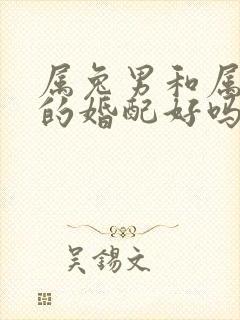 属兔男和属
的婚配好吗
吴锡文